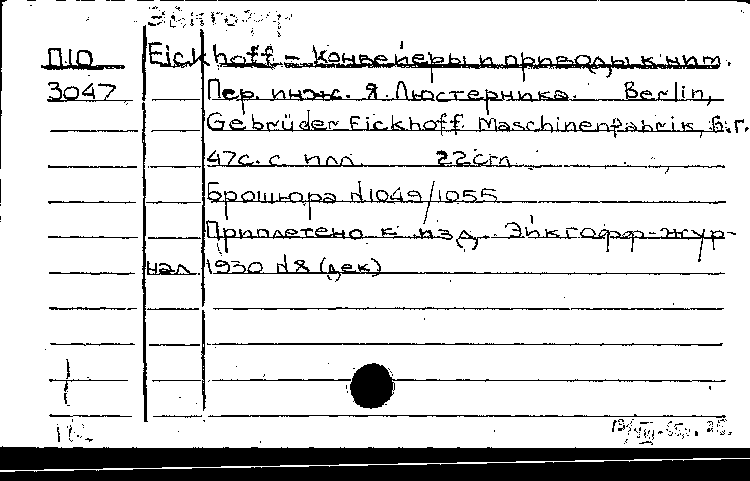 Эйкгофф
П10 Eickhoff - Конвейеры и приводы к ним.
3047 Пер. инж. Я. Люстерника. Berlin,
Gebrüder Eickhoff Maschinenfabrik, Б.г.
47с. с илл. 22см.
Брошюра N1049/1055
Приплетено к изд. Эйкгофф-жур-
нал 1930 N8 (дек)